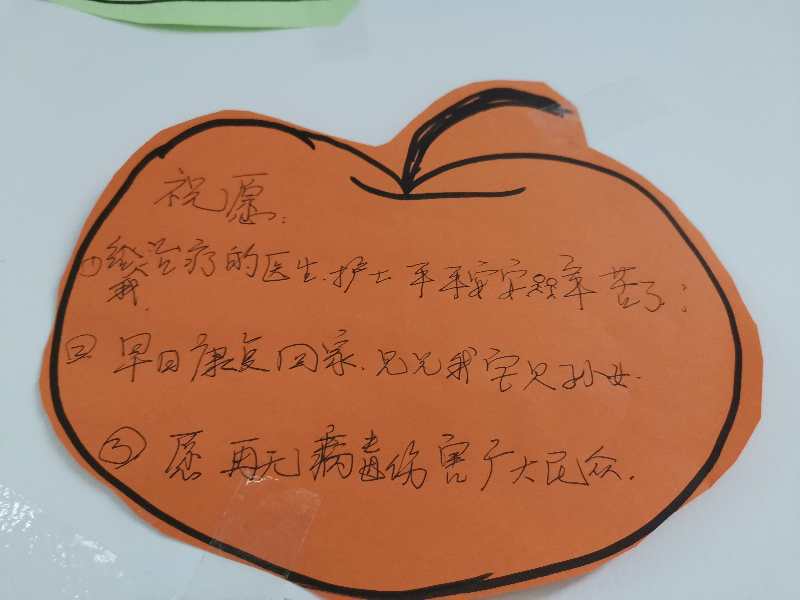 祝愿:
①给我治疗的医生.护士平平安安辛苦了;
②早日康复回家.见见我宝贝孙女.
③愿再无病毒伤害广大民众.